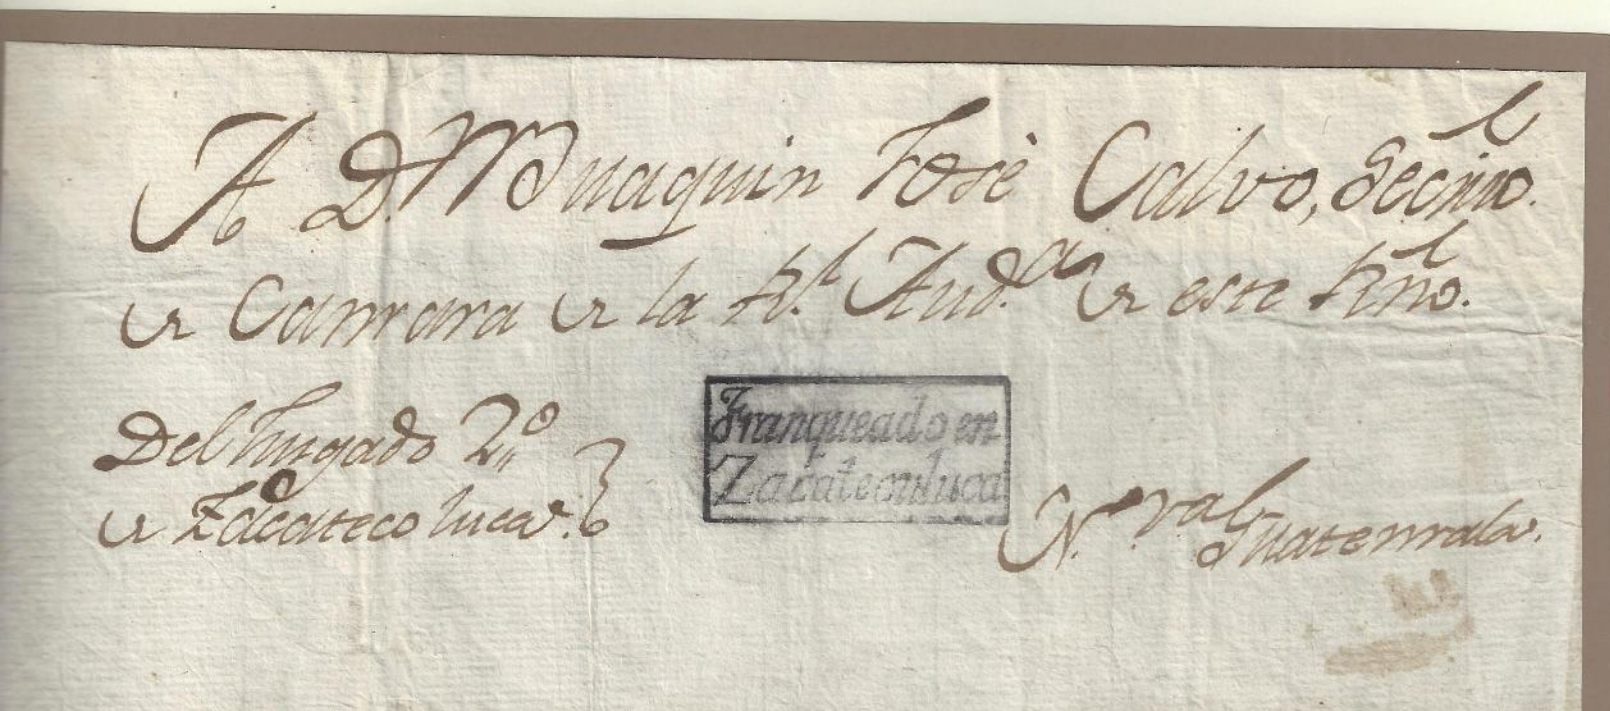 A D.n Juaquin José Calvo, Secrino.
de Camara de la Rl. Aud.a de este Rno.
Del Jusgado 2.o
de Zacatecoluca.
Franqueado en
Zacatecoluca
N.a Guatemala.